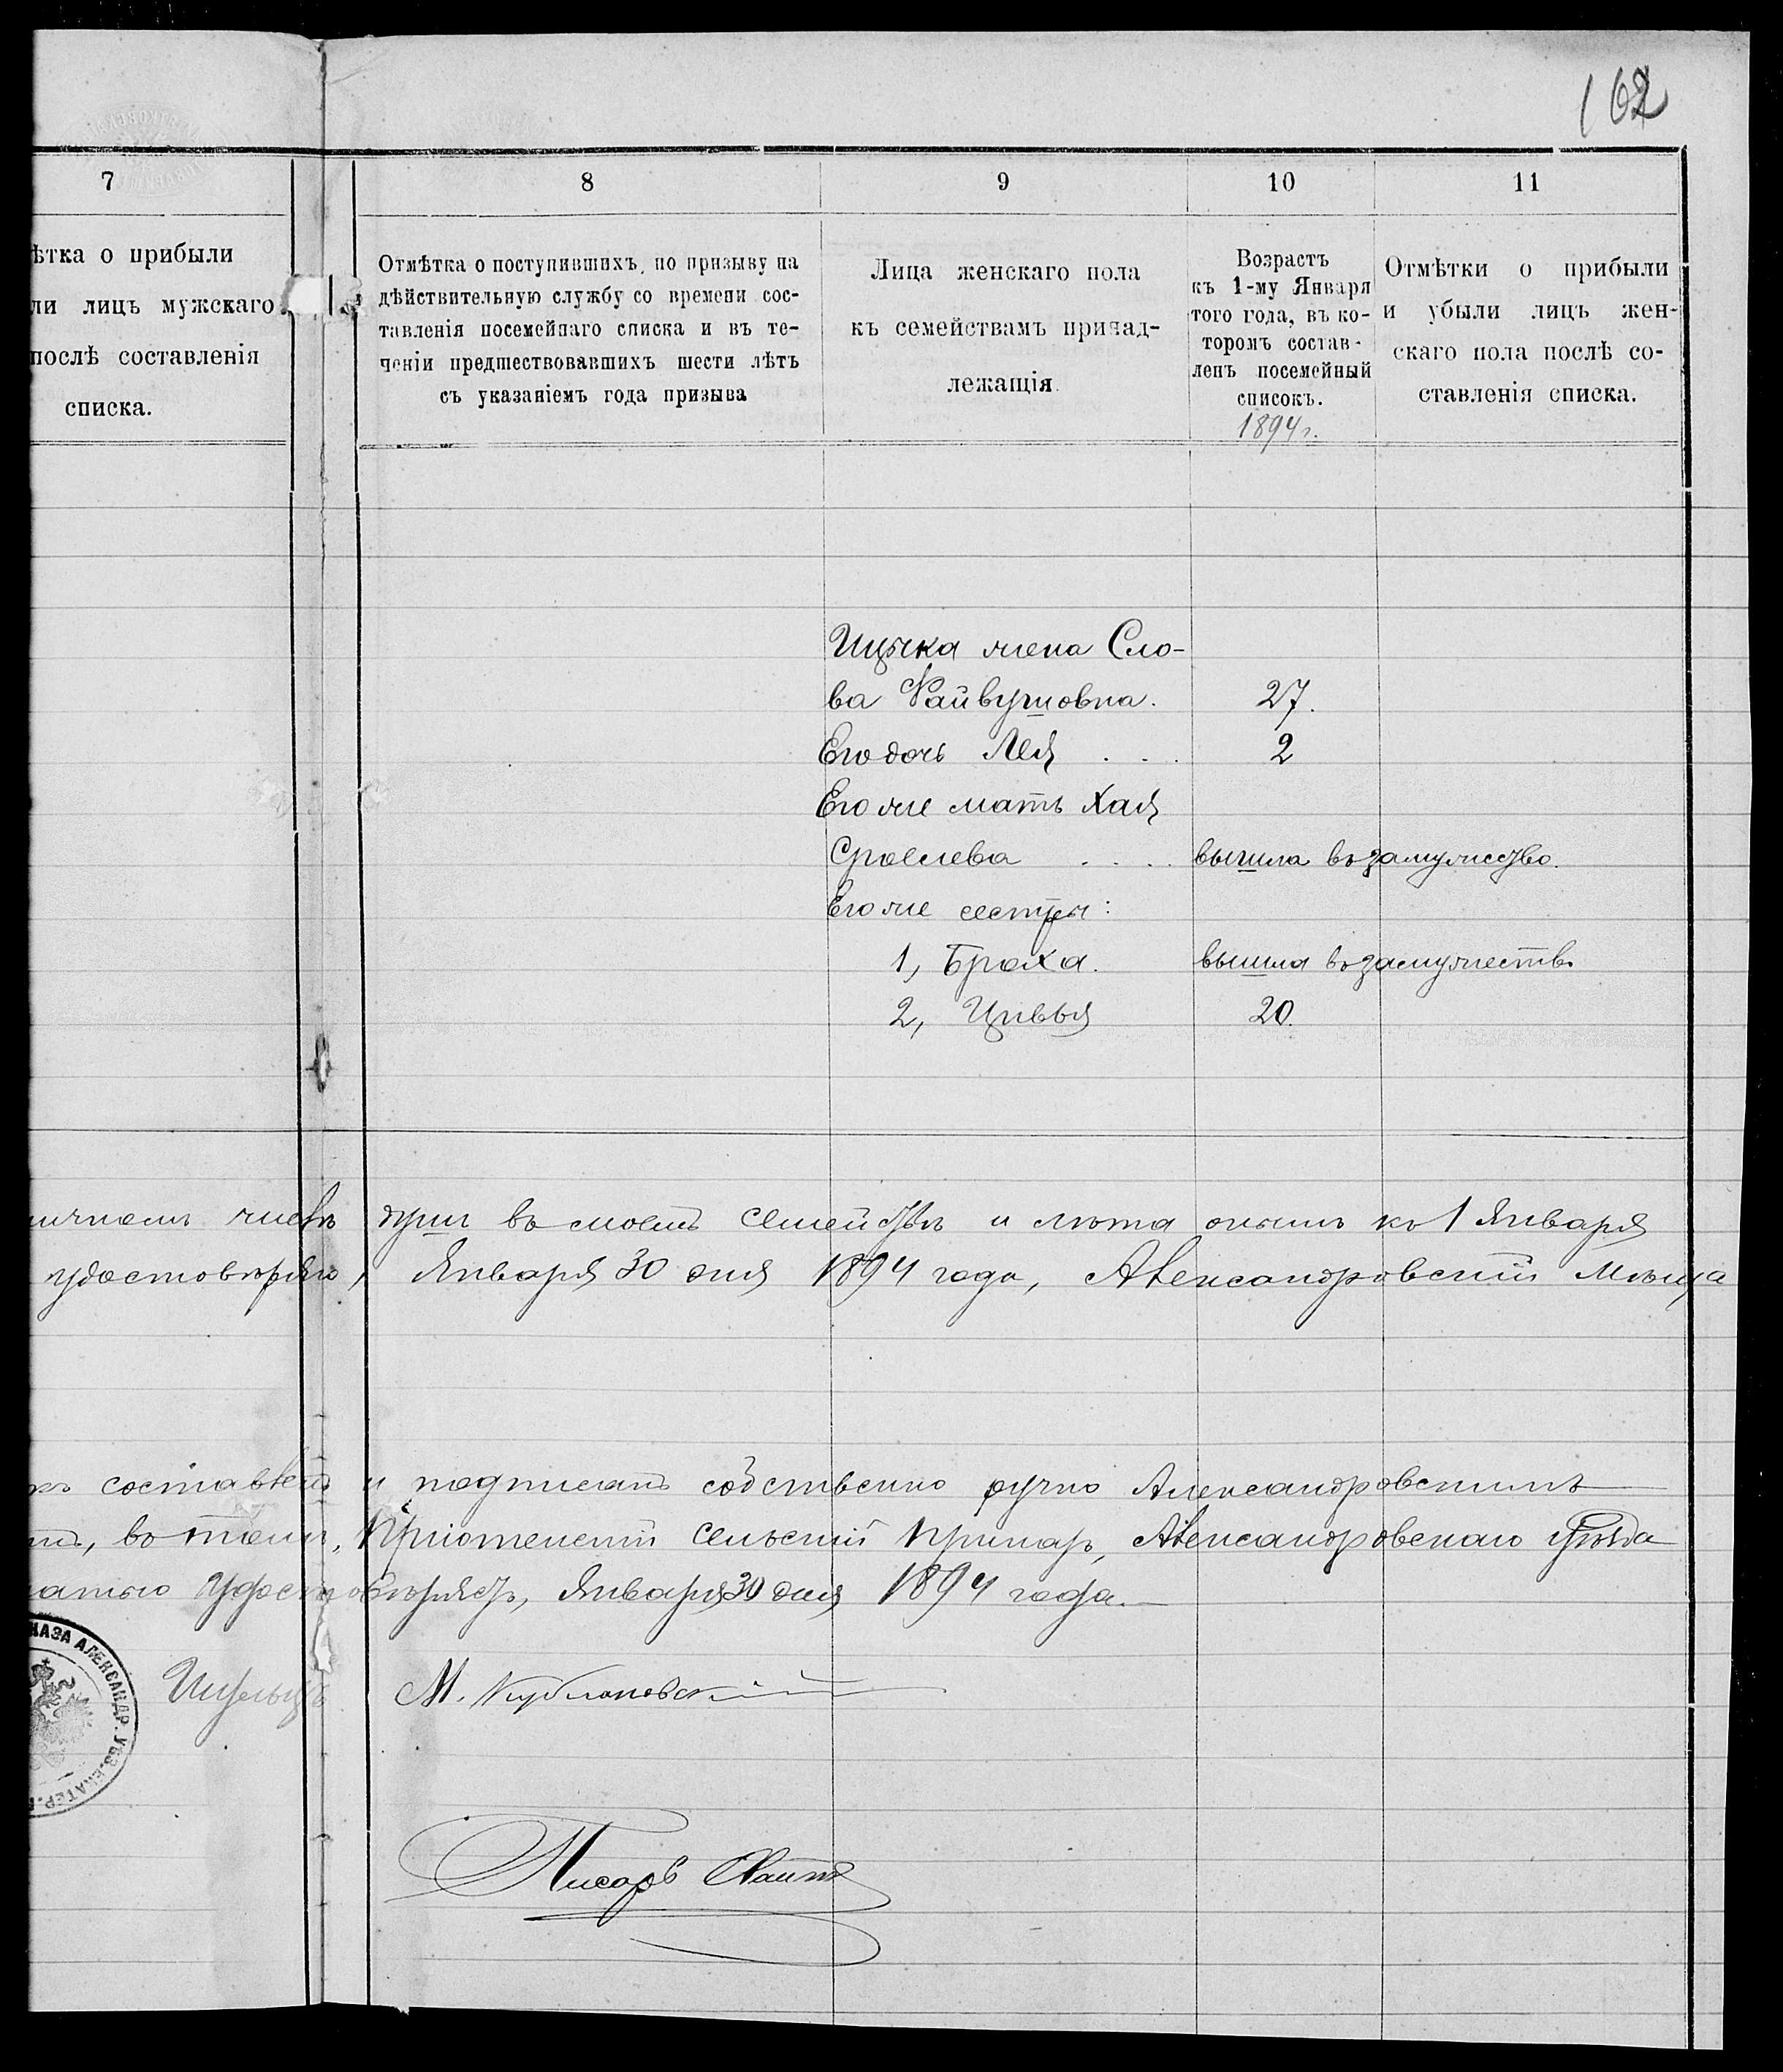 162
7
8
9
10
11
ѣтка о прибыли
ли лицъ мужскаго
послѣ составленія
списка.
Отмѣтка о поступившихъ, по призыву на
дѣйствительную службу со времени сос-
тавленія посемейнаго списка и въ те-
ченіи предшествовавшихъ шести лѣтъ
съ указаніемъ года призыва
Лица женскаго пола
къ семействамъ принад-
лежащія
Возрастъ
къ 1-му Января
того года, въ ко-
торомъ состав-
ленъ посемейный
списокъ.
1894 г.
Отмѣтки о прибыли
и убыли лицъ жен-
скаго пола послѣ со-
ставленія списка.
Ицька жена Сло-
ва Файвушовна. 27.
Его дочь Лея . . . 2
Его же мать Хая
Сролева . . . . вышла въ замужество.
Его же сестры:
1, Браха. вышла въ замужество
2, Цивья 20.
душъ въ моемъ семействѣ и лѣта онымъ къ 1 Января
удостовѣряю, Января 30 дня 1894 года, Александровскій Мѣща
составленъ и подписанъ собственно ручно Александровскимъ
въ томъ, Пріютенскій Сельскій Приказъ, Александровскаго уѣзда
печатью удостовѣряетъ, Января 30 дня 1894 года.
КАЗА АЛЕКСАНДР. УѢЗ. ЕКАТЕР.
М.
Писарь